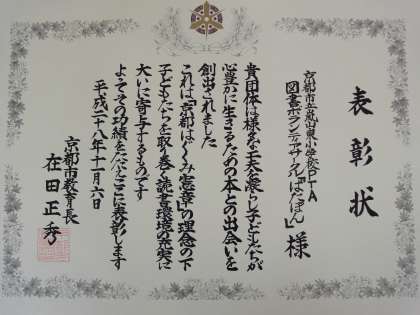 表彰状
京都市立嵐山東小学校PTA
図書ボランティアサークル「ぱたぽん」様
貴団体は様々な工夫を凝らし子どもたちが
心豊かに生きるための本との出会いを
創出されました
これは「京都はぐくみ憲章」の理念の下
子どもたちを取り巻く読書環境の充実に
大いに寄与するものです
よってその功績をたたえここに表彰します
平成二十八年十一月六日
京都市教育長
在田正秀